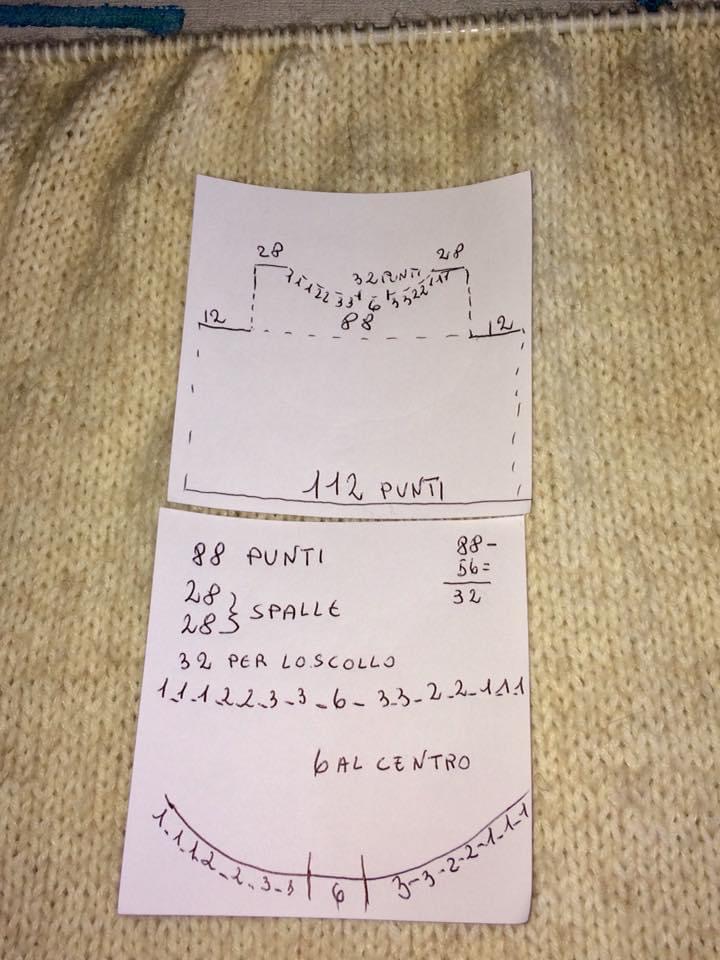 28 28
32 PUNTI
1 1 1 2 2 3 3 6 3 3 2 2 1 1 1
88
12 12
112 PUNTI
88 PUNTI 88-
28 56=
28 } SPALLE 32
32 PER LO SCOLLO
1-1-1-2-2-3-3-6-3-3-2-2-1-1-1
6 AL CENTRO
1-1-1-2-2-3-3 6 3-3-2-2-1-1-1